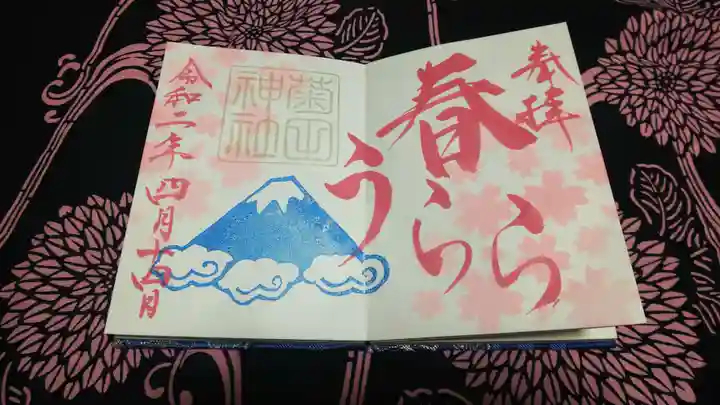 奉拝
春うらら
菊田神社
令和二年四月十四日